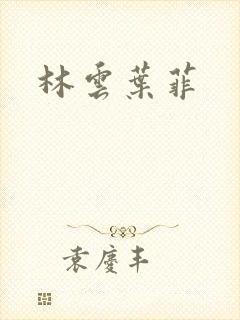 林雲葉菲
袁慶丰